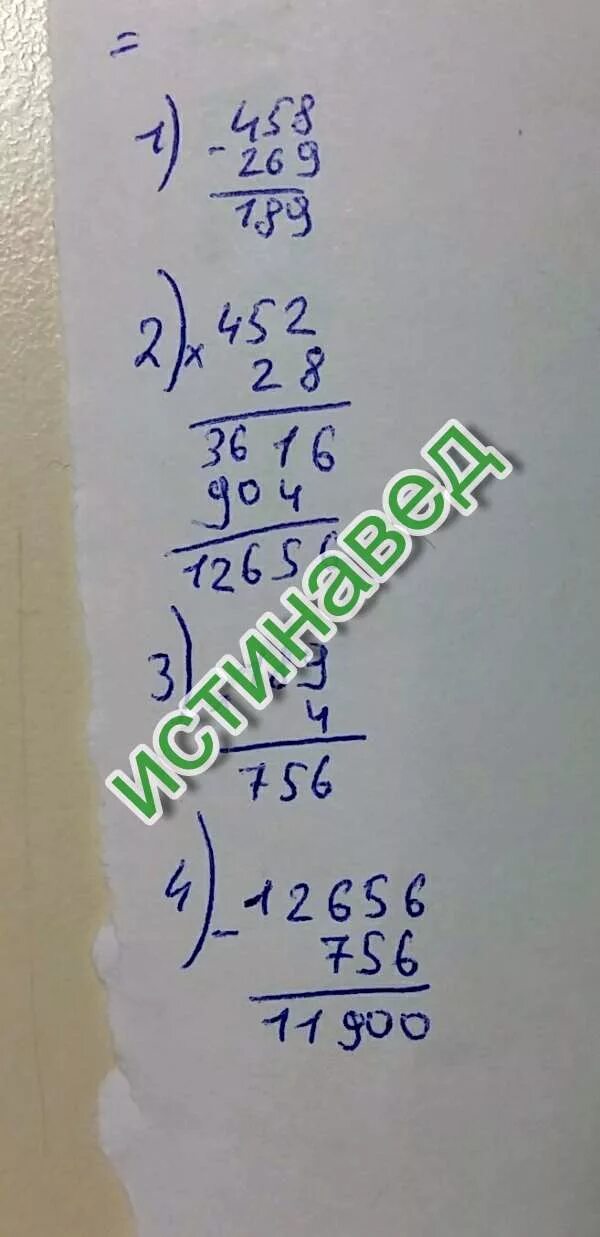 =
1) - 458
269
189
2) x 452
28
3616
904
12656
3)
4
756
4) - 12656
756
11900
ИСТИНАВЕД